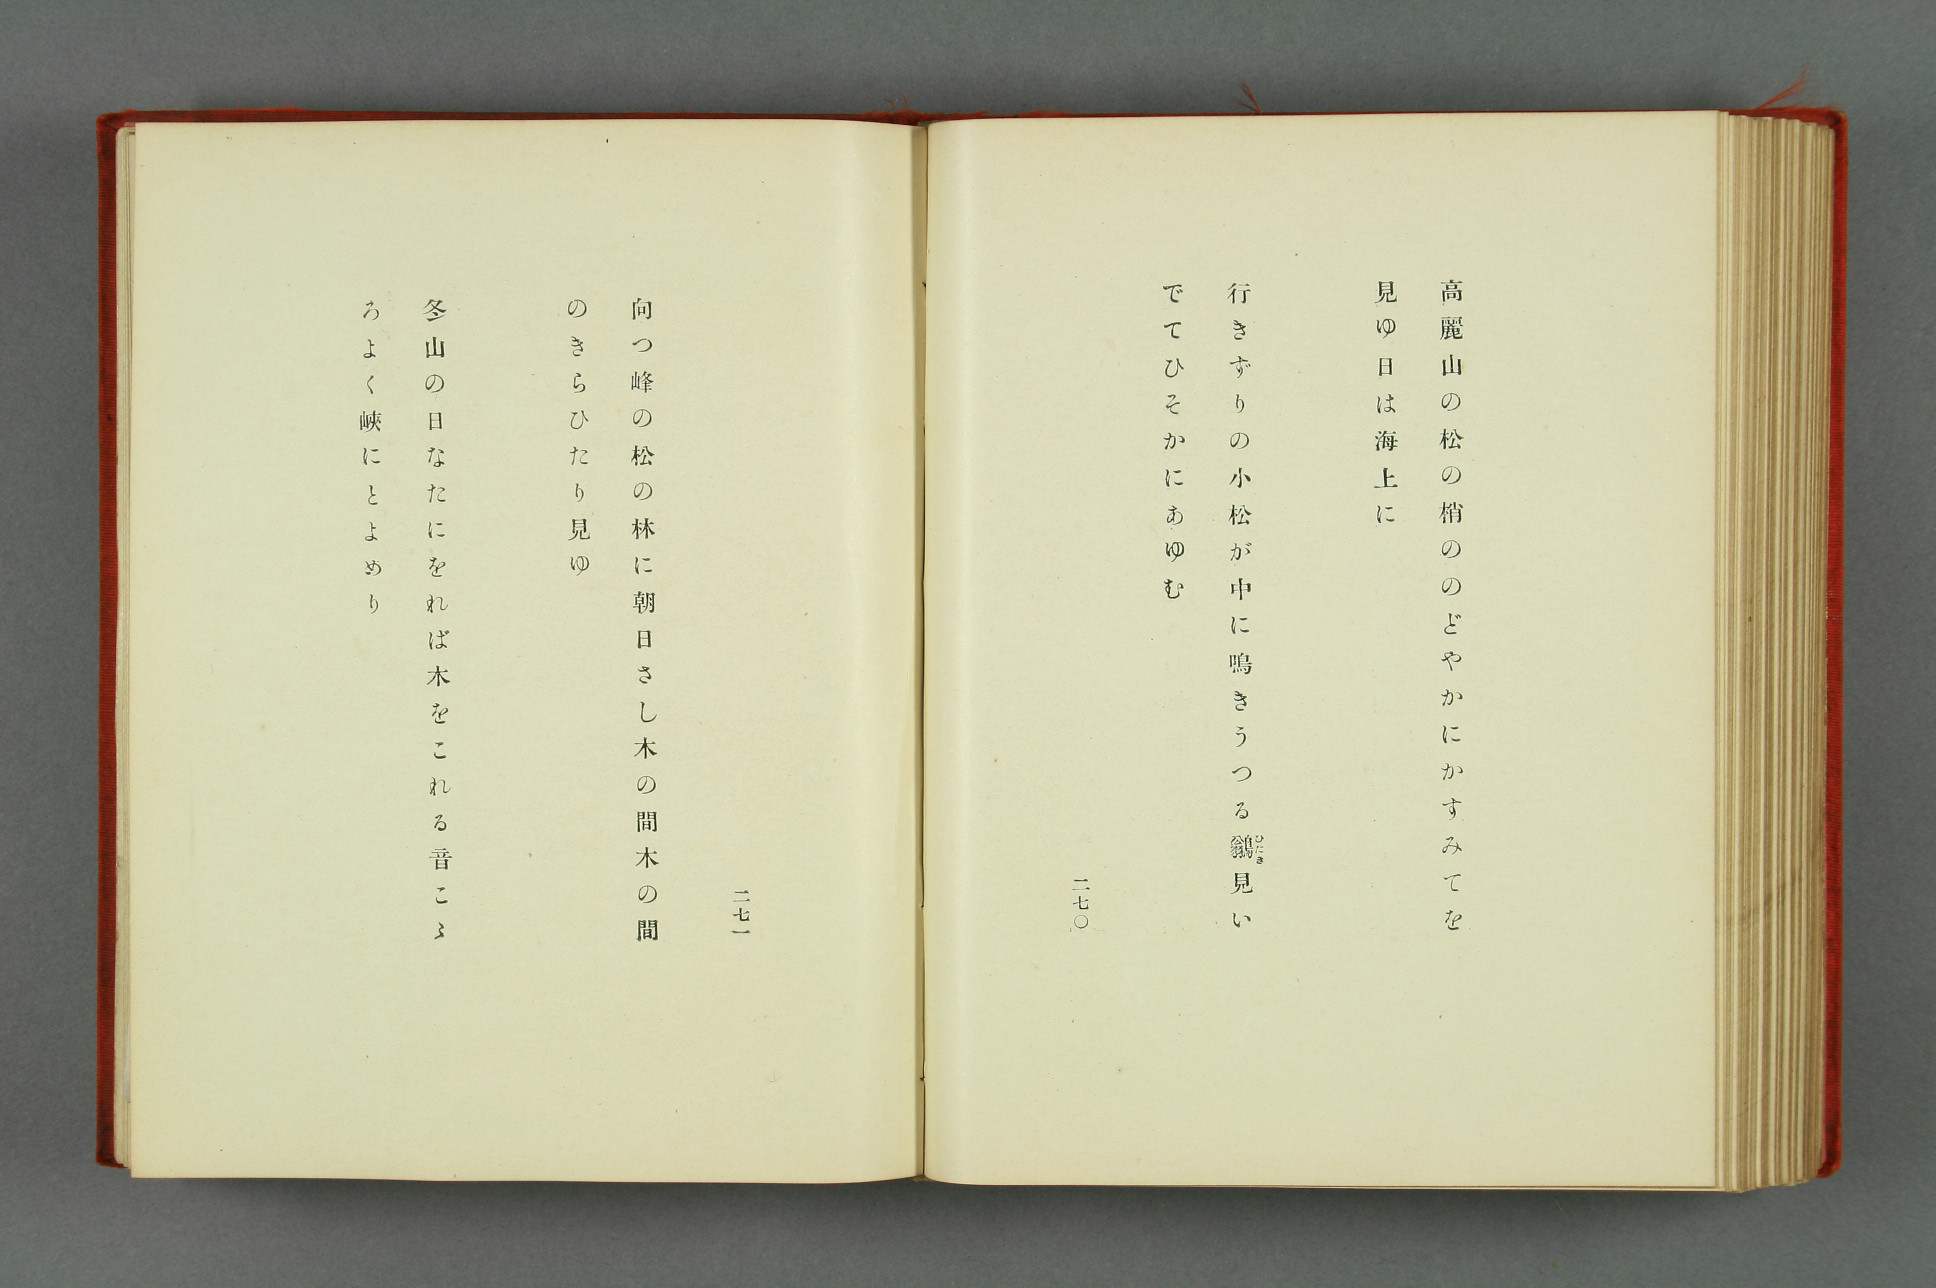 高麗山の松の梢ののどやかにかすみてを
見ゆ日は海上に
行きずりの小松が中に鳴きうつる鶲見い
ひたき
でてひそかにあゆむ
二七〇
二七一
向つ峰の松の林に朝日さし木の間木の間
のきらひたり見ゆ
冬山の日なたにをれば木をこれる音こゝ
ろよく峽にとよめり